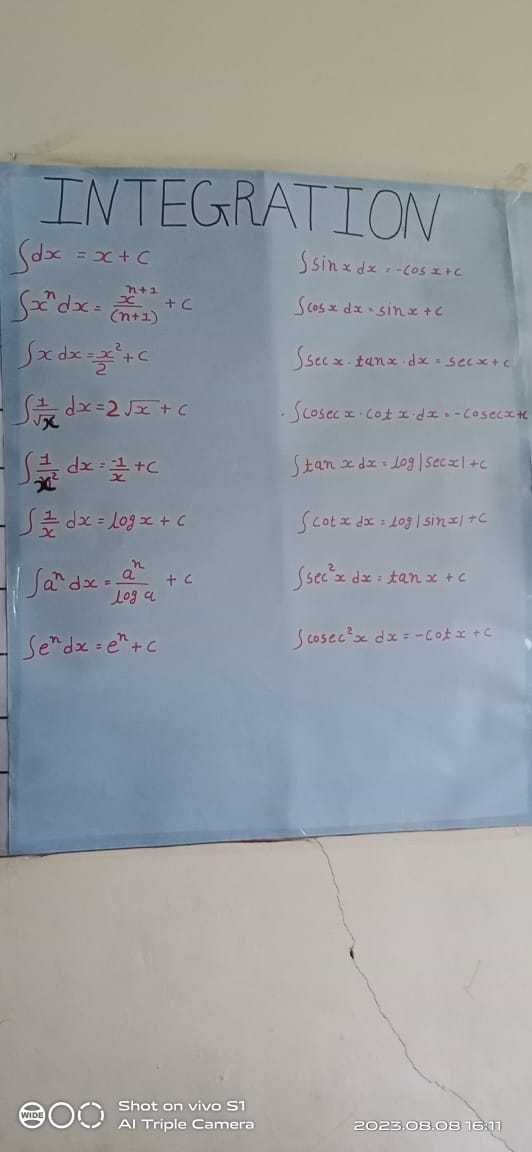 INTEGRATION
∫dx = x + c
∫xⁿ dx = xⁿ⁺¹/(n+1) + c
∫x dx = x²/2 + c
∫1/√x dx = 2√x + c
∫1/x² dx = -1/x + c
∫1/x dx = log x + c
∫aⁿ dx = aⁿ/log a + c
∫eⁿ dx = eⁿ + c
∫sin x dx = -cos x + c
∫cos x dx = sin x + c
∫sec x · tan x · dx = sec x + c
∫cosec x · cot x · dx = -cosec x + c
∫tan x dx = log |sec x| + c
∫cot x dx = log |sin x| + c
∫sec² x dx = tan x + c
∫cosec² x dx = -cot x + c
WIDE
Shot on vivo S1
AI Triple Camera
2023.08.08 16:11